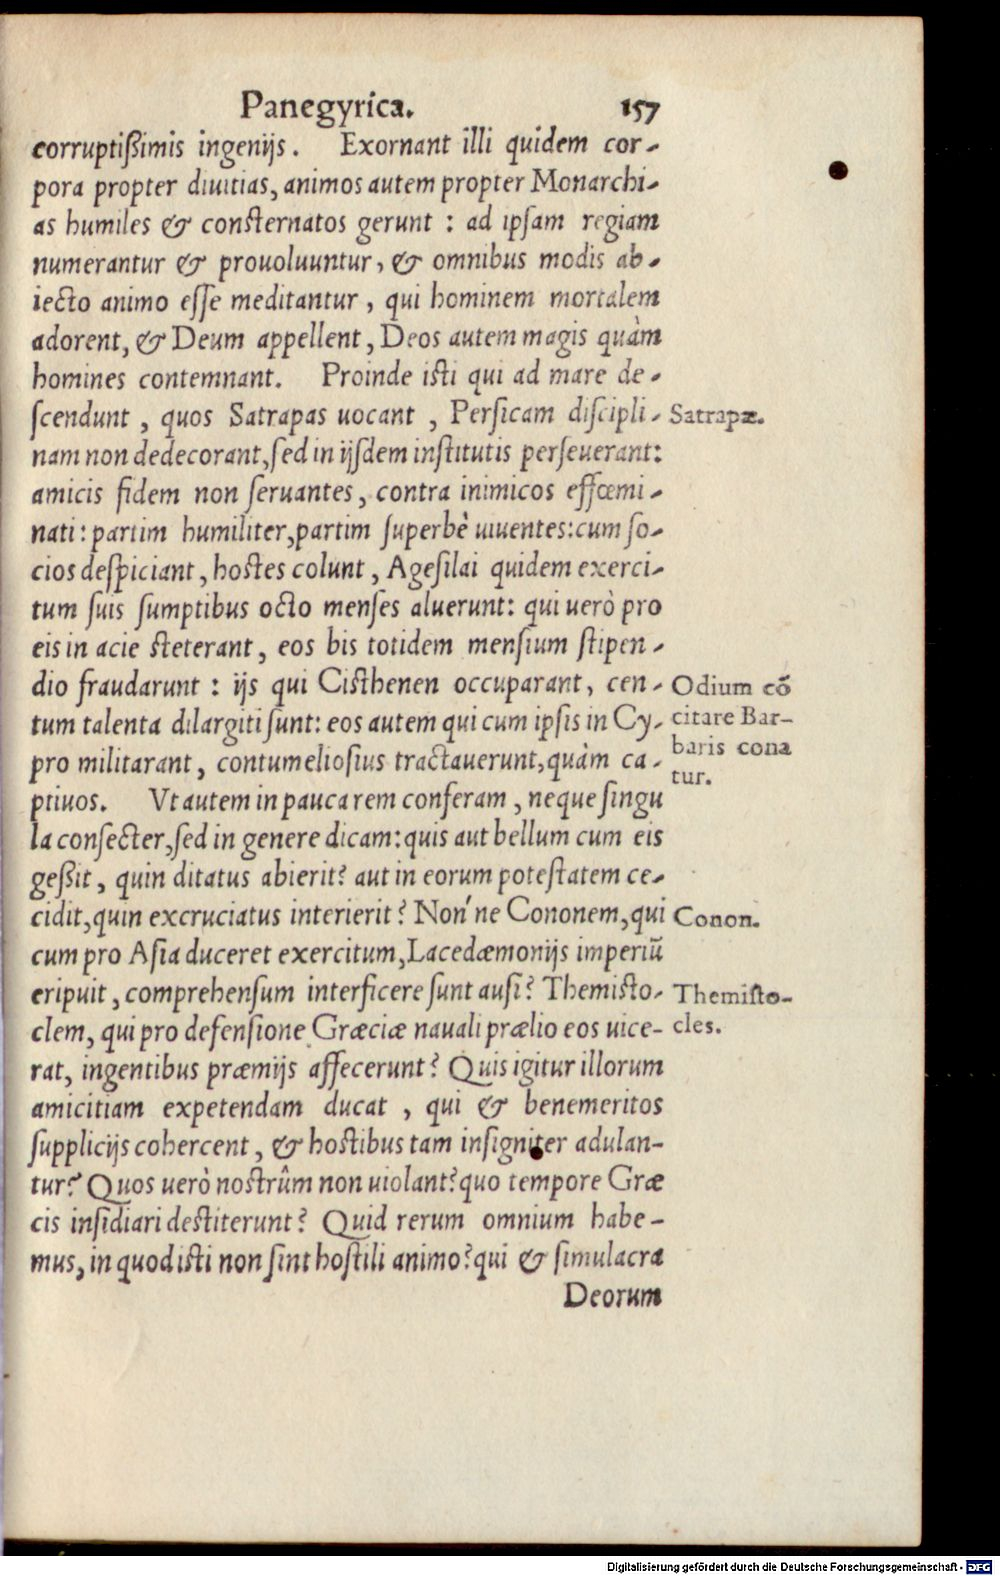 Panegyrica. 157
corruptißimis ingenijs. Exornant illi quidem cor-
pora propter diuitias, animos autem propter Monarchi-
as humiles & consternatos gerunt : ad ipsam regiam
numerantur & prouoluuntur, & omnibus modis ab-
iecto animo esse meditantur, qui hominem mortalem
adorent, & Deum appellent, Deos autem magis quàm
homines contemnant. Proinde isti qui ad mare de-
scendunt, quos Satrapas uocant, Persicam discipli- Satrapæ.
nam non dedecorant, sed in ijsdem institutis perseuerant:
amicis fidem non seruantes, contra inimicos effœmi-
nati: partim humiliter, partim superbè uiuentes: cum so-
cios despiciant, hostes colunt, Agesilai quidem exerci-
tum suis sumptibus octo menses aluerunt: qui uerò pro
eis in acie steterant, eos bis totidem mensium stipen-
dio fraudarunt : ijs qui Cisthenen occuparant, cen- Odium cõ
tum talenta dilargiti sunt: eos autem qui cum ipsis in Cy- citare Bar-
pro militarant, contumeliosius tractauerunt, quàm ca- baris cona
ptiuos. Vt autem in pauca rem conferam, neque singu tur.
la consecter, sed in genere dicam: quis aut bellum cum eis
geßit, quin ditatus abierit? aut in eorum potestatem ce-
cidit, quin excruciatus interierit? Non'ne Cononem, qui Conon.
cum pro Asia duceret exercitum, Lacedæmonijs imperiũ
eripuit, comprehensum interficere sunt ausi? Themisto- Themisto-
clem, qui pro defensione Græciæ nauali prælio eos uice- cles.
rat, ingentibus præmijs affecerunt? Quis igitur illorum
amicitiam expetendam ducat, qui & benemeritos
supplicijs cohercent, & hostibus tam insigniter adulan-
tur? Quos uerò nostrûm non uiolant? quo tempore Græ
cis insidiari destiterunt? Quid rerum omnium habe-
mus, in quod isti non sint hostili animo? qui & simulacra
Deorum
Digitalisierung gefördert durch die Deutsche Forschungsgemeinschaft - DFG